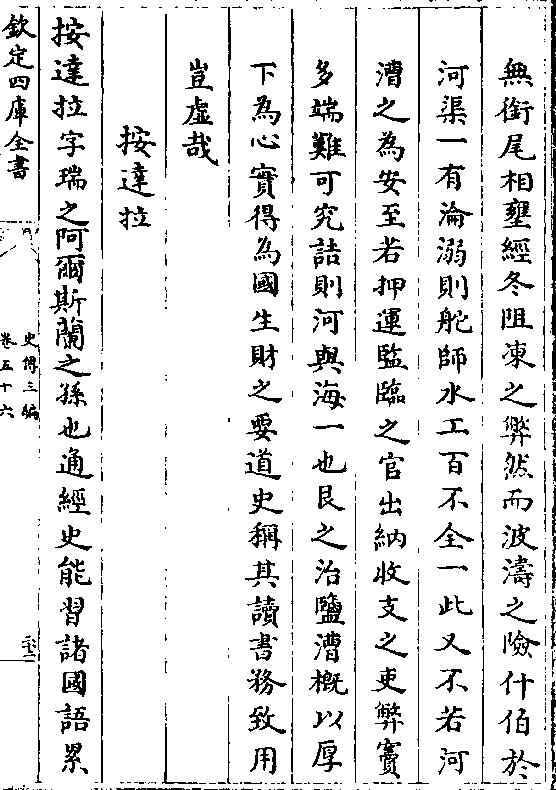 無銜尾相壅經冬阻凍之弊然而波濤之險什伯於
河渠一有淪溺則舵師水工百不全一此又不若河
漕之為安至若押運監臨之官出納收支之吏弊竇
多端難可究詰則河與海一也艮之治鹽漕概以厚
下為心實得為國生財之要道史稱其讀書務致用
豈虛哉
按達拉
按達拉字瑞之阿爾斯蘭之孫也通經史能習諸國語累
欽定四庫全書
史傳三編
卷五十六